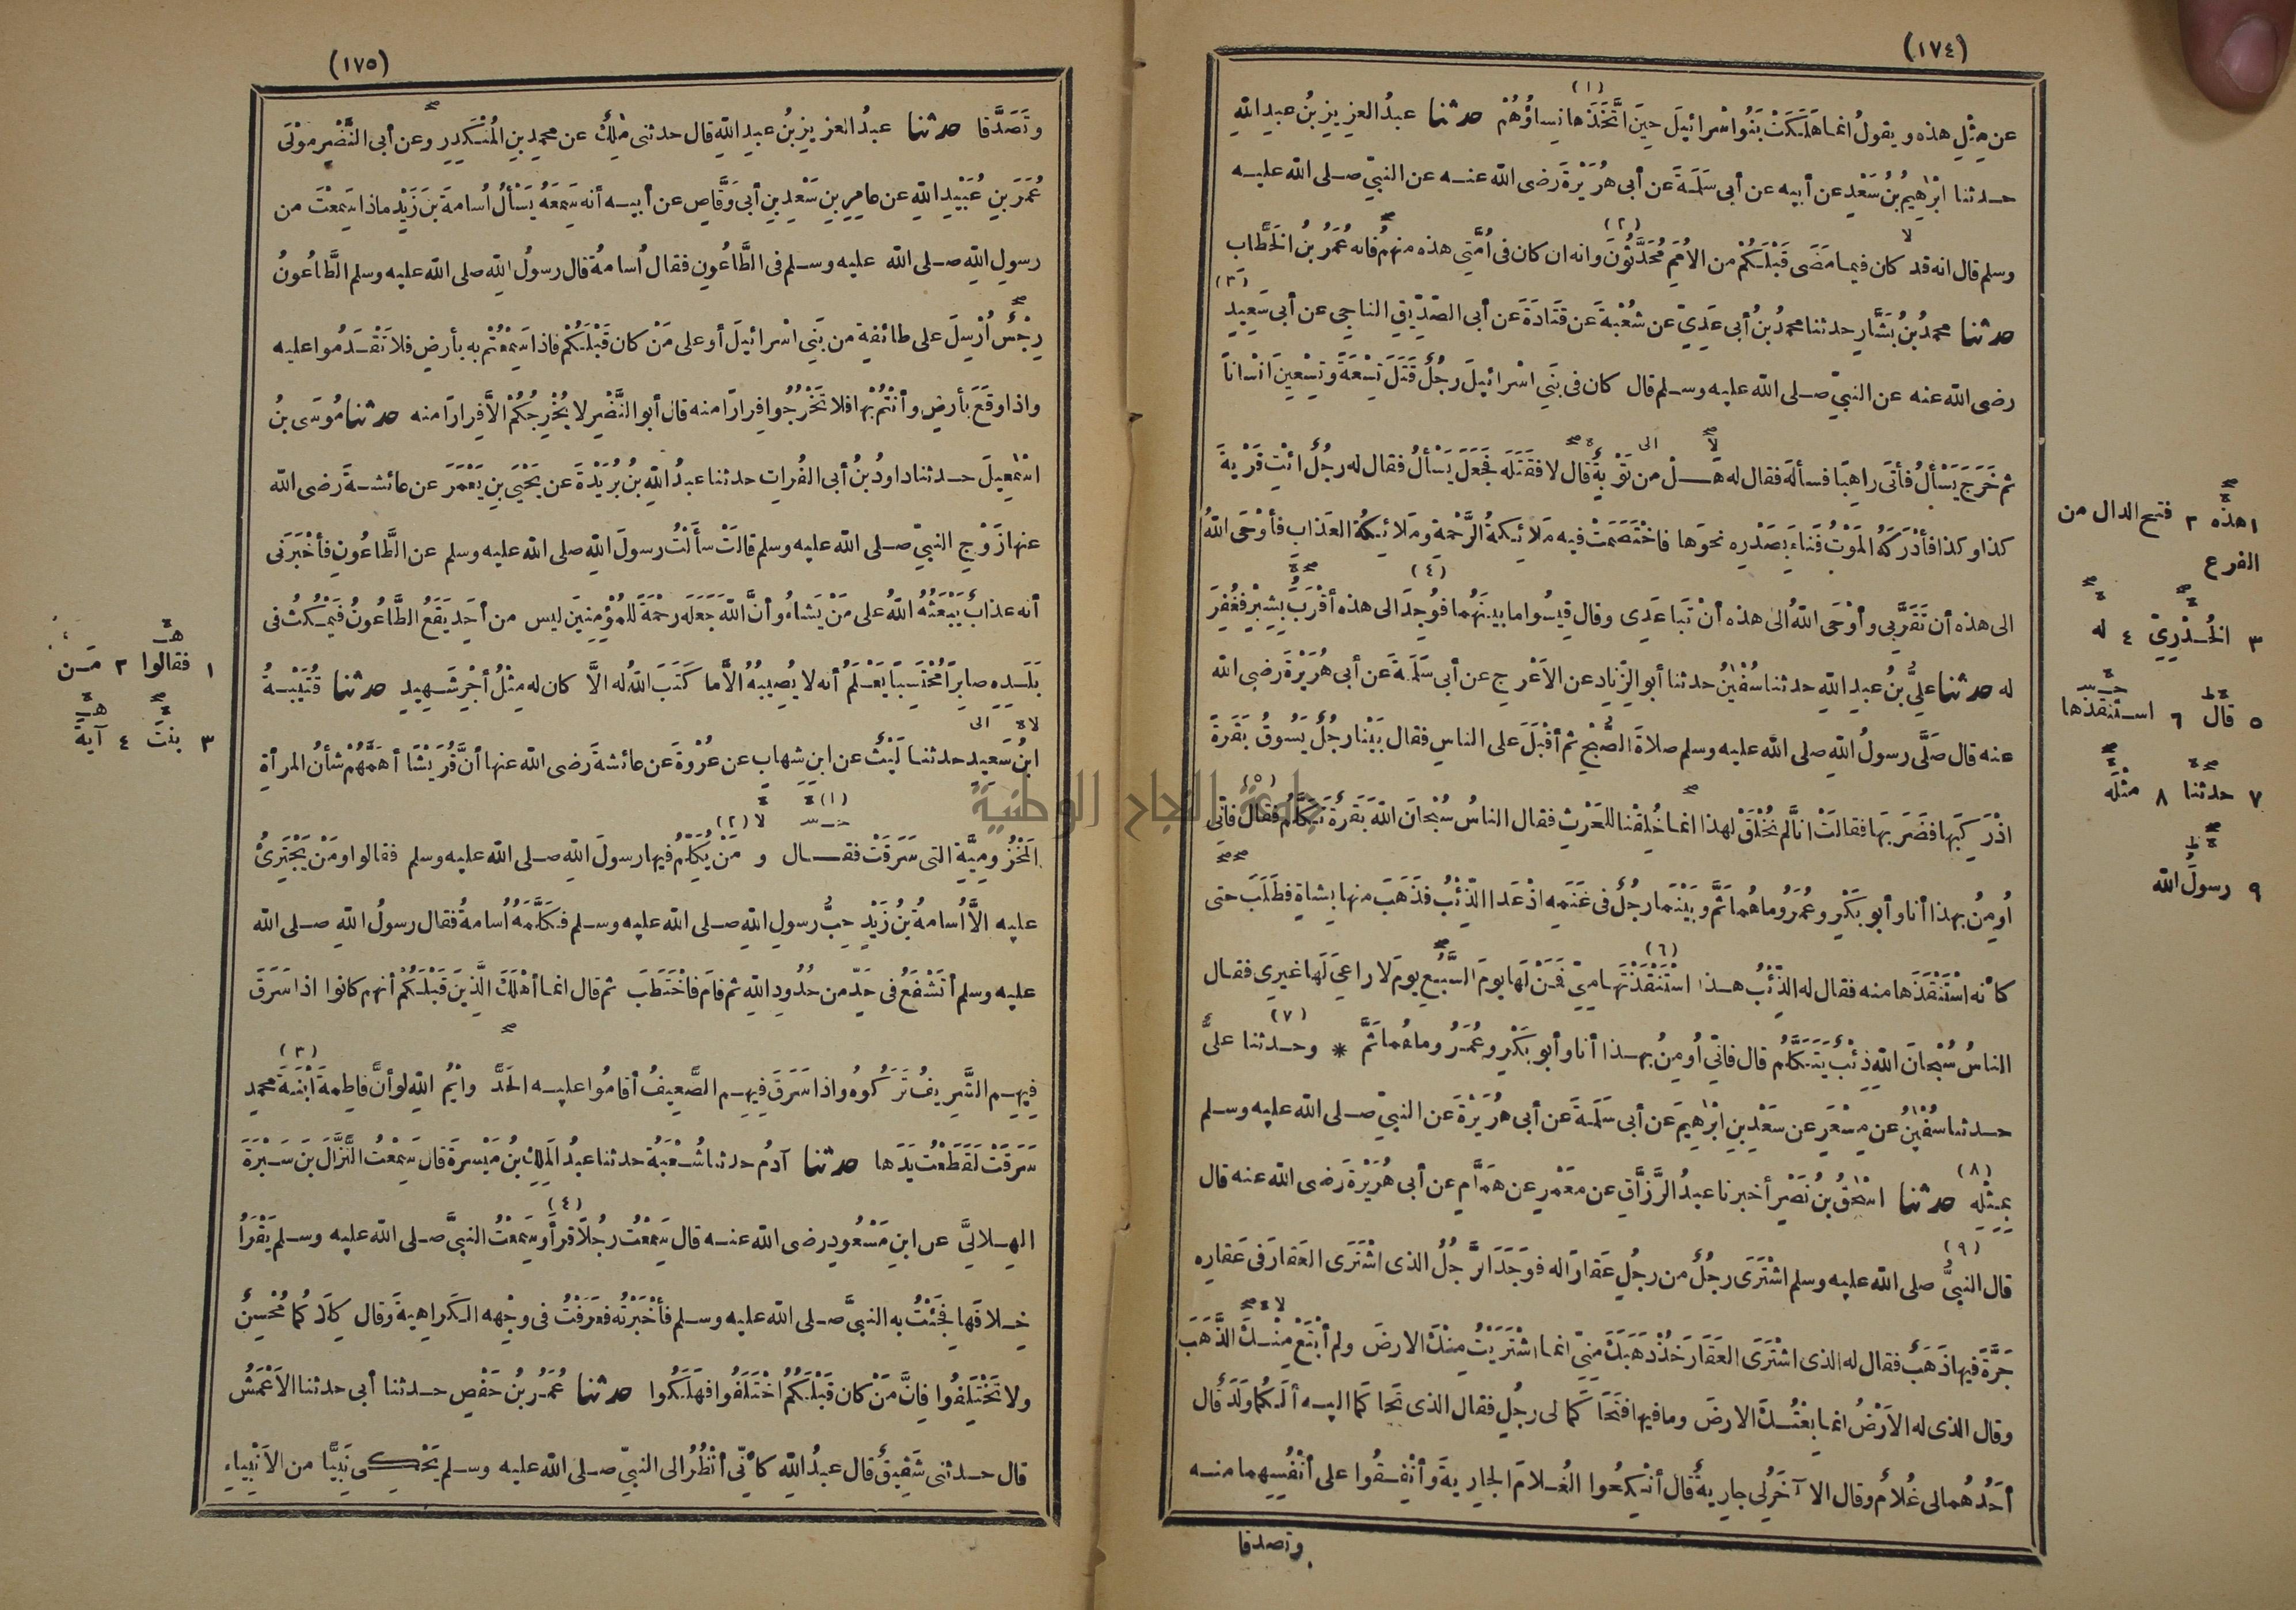 (١٧٤)
عن مِثْلِ هذه ويقولُ انما هَلَكَتْ بَنُو اسْرائيلَ حِينَ اتَّخَذَها نِساؤُهُمْ حدثنا عبدُ العزيزِ بنُ عبدِ اللهِ
حدثنا ابْرٰهِيمُ بنُ سَعْدٍ عن أبيه عن أبى سَلَمَةَ عن أبى هُرَيْرَةَ رضى الله عنه عن النبىِّ صلى الله عليه
وسلم قال انه قد كان فيما مَضَى قَبْلَكُمْ من الاُمَمِ مُحَدَّثُونَ وانه ان كان فى اُمَّتِى هذه منهم فانه عُمَرُ بنُ الخَطَّاب
حدثنا محمدُ بنُ بَشَّارٍ حدثنا محمدُ بنُ أبى عَدِىٍّ عن شُعْبَةَ عن قَتَادَةَ عن أبى الصِّدِّيقِ الناجِى عن أبى سَعِيدٍ
رضى الله عنه عن النبىِّ صلى الله عليه وسلم قال كان فى بَنِى اسْرائيلَ رجُلٌ قَتَلَ تِسْعَةً وتِسْعِينَ انْسانًا
ثم خَرَجَ يَسْأَلُ فأتَى راهِبًا فسألَه فقال له هَلْ من تَوْبةٍ قال لا فقَتَلَه فجَعَلَ يَسْأَلُ فقال له رجُلٌ ائْتِ قَرْيةَ
كذا وكذا فأدْرَكَهُ المَوْتُ فَناءَ بصَدْرِه نحوَها فاخْتَصَمَتْ فيه مَلائكةُ الرَّحْمةِ ومَلائكةُ العَذابِ فأوْحَى اللهُ
الى هذه أن تَقَرَّبِى وأوْحَى اللهُ الى هذه أنْ تَباعَدِى وقال قِيسُوا ما بينَهُما فوُجِدَ الى هذه أقْرَبُ بِشِبْرٍ فغُفِرَ
له حدثنا علِىُّ بنُ عبدِ اللهِ حدثنا سُفْيٰنُ حدثنا أبو الزِّناد عن الاَعْرَجِ عن أبى سَلَمَةَ عن أبى هُرَيْرَةَ رضى الله
عنه قال صَلَّى رسولُ اللهِ صلى الله عليه وسلم صلاةَ الصُّبْحِ ثم أقْبَلَ على الناسِ فقال بَيْنا رجُلٌ يَسُوقُ بَقَرَةً
اذْ رَكِبَها فضَرَبَها فقالتْ انَّا لَم نُخْلَقْ لهذا انما خُلِقْنا للحَرْثِ فقال الناسُ سُبْحانَ اللهِ بَقَرةٌ تَكَلَّمُ فقال فانِّى
اُومِنُ بهذا أنا وأبو بَكْرٍ وعُمَرُ وما هُما ثَمَّ وبَيْنَما رجُلٌ فى غَنَمِه اذْ عَدَا الذِّئْبُ فذَهَبَ منها بِشاةٍ فطَلَبَ حتى
كانه اسْتَنْقَذَها منه فقال له الذِّئْبُ هذا اسْتَنْقَذْتَها مِنِّى فَمَنْ لَها يومَ السَّبُعِ يومَ لا راعِىَ لَها غيرِى فقال
الناسُ سُبْحانَ اللهِ ذِئْبٌ يَتَكَلَّمُ قال فانِّى اُومِنُ بهذا أنا وأبو بَكْرٍ وعُمَرُ وما هُما ثَمَّ * وحدثنا علىٌّ
حدثنا سُفْيٰنُ عن مِسْعَرٍ عن سَعْدِ بنِ ابْرٰهِيمَ عن أبى سَلَمَةَ عن أبى هُرَيْرَةَ عن النبىِّ صلى الله عليه وسلم
بِمِثْلِه حدثنا اسْحٰقُ بنُ نَصْرٍ أخبرنا عبدُ الرَّزَّاقِ عن مَعْمَرٍ عن هَمَّامٍ عن أبى هُرَيْرَةَ رضى الله عنه قال
قال النبىُّ صلى الله عليه وسلم اشْتَرَى رجُلٌ من رجُلٍ عَقارًا له فوَجَدَ الرَّجُلُ الذى اشْتَرَى العَقارَ فى عَقارِه
جَرَّةً فيها ذَهَبٌ فقال له الذى اشْتَرَى العَقَارَ خُذْ ذَهَبَكَ مِنِّى انما اشْتَرَيْتُ مِنْكَ الارضَ ولم أبْتَعْ مِنْكَ الذَّهَبَ
وقال الذى له الاَرْضُ انما بِعْتُكَ الارضَ وما فيها فتَحَاكَما لى رجُلٍ فقال الذى تَحَاكَما اليه ألَكُما وَلَدٌ قال
أحَدُهُما لى غُلامٌ وقال الآخَرُ لى جاريةٌ قال أنْكِحُوا الغُلامَ الجاريةَ وأنْفِقُوا على أنْفُسِهِما منه
وتصدقا
١ هذِه ٢ فتح الدال من
الفرع
٣ الخُدْرِىِّ ٤ له
٥ قال ٦ استنقذها
٧ حدثنا ٨ مثْلَه
٩ رسولُ الله
(١٧٥)
وتَصَدَّقا حدثنا عبدُ العزيزِ بنُ عبدِ اللهِ قال حدثنى مٰلِكٌ عن محمدِ بنِ المُنْكَدِرِ وعن أبى النَّضْرِ مولَى
عُمَرَ بنِ عُبَيْدِ اللهِ عن عامِرِ بنِ سَعْدِ بنِ أبى وَقَّاصٍ عن أبيه أنه سَمِعَهُ يَسْأَلُ اُسامةَ بنَ زَيْدٍ ماذا سَمِعْتَ من
رسولِ اللهِ صلى الله عليه وسلم فى الطَّاعُونِ فقال اُسامةُ قال رسولُ اللهِ صلى الله عليه وسلم الطَّاعُونُ
رِجْسٌ اُرْسِلَ على طائفةٍ من بَنِى اسْرائيلَ أو على مَنْ كان قَبْلَكُمْ فاذا سَمِعْتُمْ به بأرضٍ فلا تَقْدَمُوا عليه
واذا وَقَعَ بأرضٍ وأنْتُمْ بها فلا تَخْرُجُوا فِرارًا منه قال أبو النَّضْرِ لا يُخْرِجُكُمْ الاَّ فِرارًا منه حدثنا مُوسَى بنُ
اسْمٰعِيلَ حدثنا داودُ بنُ أبى الفُراتِ حدثنا عبدُ اللهِ بنُ بُرَيْدَةَ عن يَحْيَى بنِ يَعْمَرَ عن عائشةَ رضى الله
عنها زَوْجِ النبىِّ صلى الله عليه وسلم قالتْ سألْتُ رسولَ اللهِ صلى الله عليه وسلم عن الطَّاعُونِ فأخْبَرَنى
أنه عذابٌ يَبْعَثُهُ اللهُ على مَنْ يَشاءُ وأنَّ اللهَ جَعَلَه رحْمَةً للمُؤْمِنِينَ ليس من أحَدٍ يَقَعُ الطَّاعُونُ فيَمْكُثُ فى
بَلَدِه صابِرًا مُحْتَسِبًا يَعْلَمُ أنه لا يُصِيبُهُ الاَّ ما كَتَبَ اللهُ له الاَّ كان له مِثْلُ أجْرِ شَهِيدٍ حدثنا قُتَيْبَةُ
ابنُ سَعِيدٍ حدثنا لَيْثٌ عن ابنِ شِهابٍ عن عُرْوةَ عن عائشةَ رضى الله عنها أنَّ قُرَيْشًا أهَمَّهُمْ شأنُ المرأةِ
المَخْزُومِيَّةِ التى سَرَقَتْ فقال و مَنْ يُكَلِّمُ فيها رسولَ اللهِ صلى الله عليه وسلم فقالوا ومَنْ يَجْتَرِئُ
عليه الاَّ اُسامةُ بنُ زَيْدٍ حِبُّ رسولِ اللهِ صلى الله عليه وسلم فكَلَّمَهُ اُسامةُ فقال رسولُ اللهِ صلى الله
عليه وسلم أتَشْفَعُ فى حَدٍّ من حُدُودِ اللهِ ثم قامَ فاخْتَطَبَ ثم قال انما أهْلَكَ الَّذِينَ قَبْلَكُمْ أنهم كانوا اذا سَرَقَ
فيهِم الشَّرِيفُ تَرَكُوهُ واذا سَرَقَ فِيهِم الضَّعِيفُ أقامُوا عليه الحَدَّ وايْمُ اللهِ لو أنَّ فاطِمةَ ابْنَةَ محمدٍ
سَرَقَتْ لقَطَعْتُ يَدَها حدثنا آدمُ حدثنا شُعْبَةُ حدثنا عبدُ المَلِكِ بنُ مَيْسرةَ قال سَمِعْتُ النَّزَّالَ بنَ سَبْرَةَ
الهِلالِىَّ عن ابنِ مَسْعُودٍ رضى الله عنه قال سَمِعْتُ رجُلاً قرأَ وسَمِعْتُ النبىَّ صلى الله عليه وسلم يَقْرَأُ
خِلافَها فجِئْتُ به النبىَّ صلى الله عليه وسلم فأخْبَرْتُه فعَرَفْتُ فى وجْهِه الكَراهِيةَ وقال كِلاكُما مُحْسِنٌ
ولا تَخْتَلِفُوا فإنَّ مَنْ كان قَبْلَكُمُ اخْتَلَفُوا فهَلَكُوا حدثنا عُمَرُ بنُ حَفْصٍ حدثنا أبى حدثنا الاَعْمَشُ
قال حدثنى شَقِيقٌ قال عبدُ اللهِ كأنِّى أنْظُرُ الى النبىِّ صلى الله عليه وسلم يَحْكِى نَبِيًّا من الاَنْبِياءِ
١ فقالوا ٢ مَن
٣ بنتَ ٤ آيةً
جامعة النجاح الوطنية